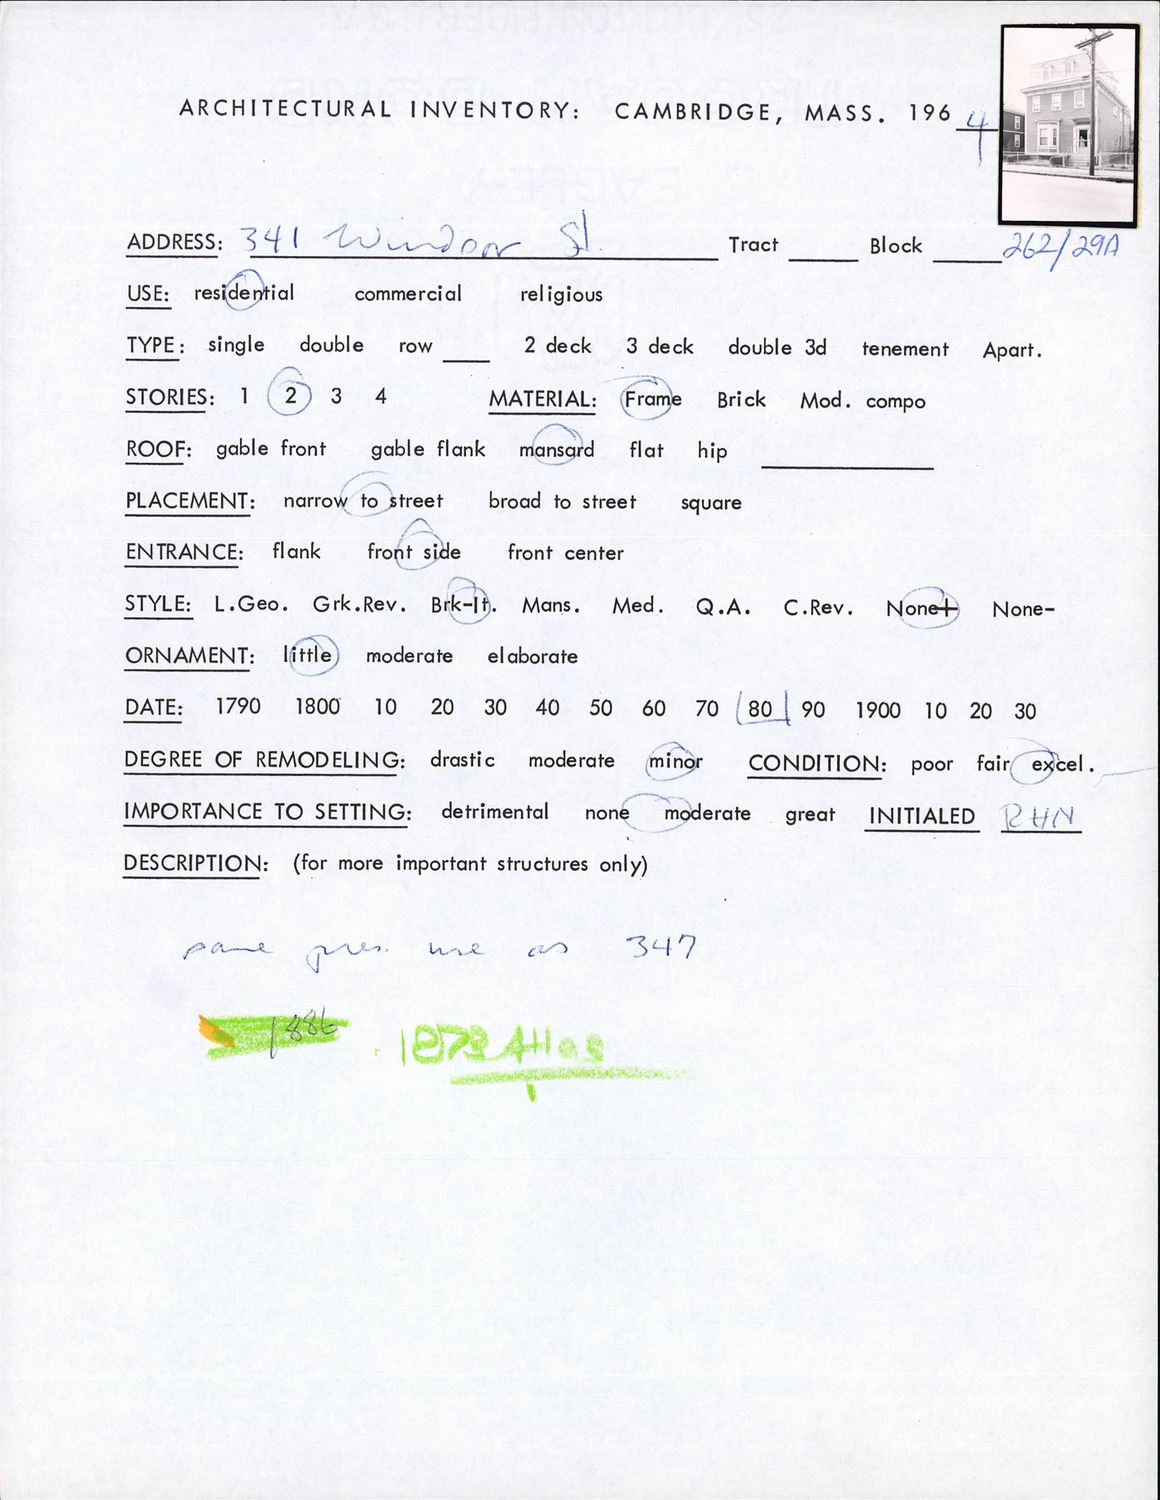 ARCHITECTURAL INVENTORY: CAMBRIDGE, MASS. 1964
ADDRESS: 341 Windsor St. Tract ____ Block ____ 262/29A
USE: residential commercial religious
TYPE: single double row ____ 2 deck 3 deck double 3d tenement Apart.
STORIES: 1 2 3 4 MATERIAL: Frame Brick Mod. compo
ROOF: gable front gable flank mansard flat hip ____
PLACEMENT: narrow to street broad to street square
ENTRANCE: flank front side front center
STYLE: L.Geo. Grk.Rev. Brk-It. Mans. Med. Q.A. C.Rev. None+ None-
ORNAMENT: little moderate elaborate
DATE: 1790 1800 10 20 30 40 50 60 70 80 90 1900 10 20 30
DEGREE OF REMODELING: drastic moderate minor CONDITION: poor fair excel.
IMPORTANCE TO SETTING: detrimental none moderate great INITIALED RHN
DESCRIPTION: (for more important structures only)
same pres. use as 347
1886 1873 Atlas